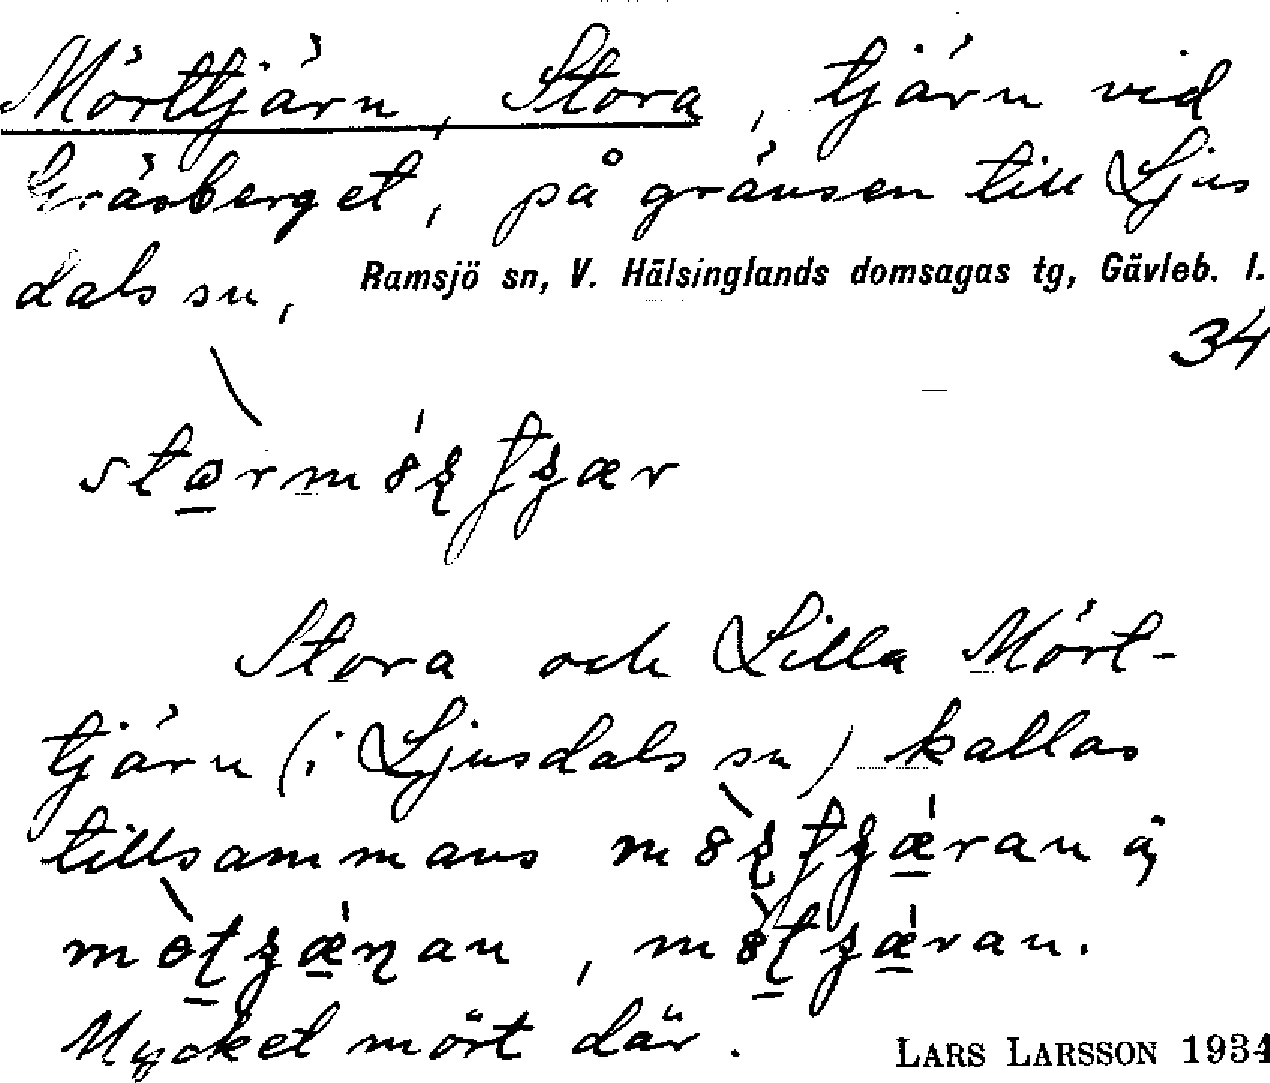 Mörttjärn, Stora, tjärn vid
Gräsberget, på gränsen till Ljus
dals sn, Ramsjö sn, V. Hälsinglands domsagas tg, Gävleb. l.
34
Stora och Lilla Mört-
tjärn (i Ljusdals sn) kallas
tillsammans
Mycket mört där.
LARS LARSSON 1934